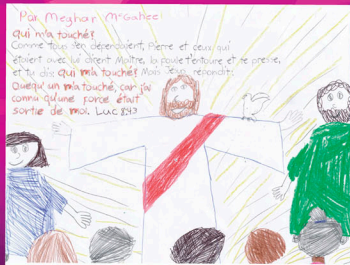 Par Meghar McGahee
Qui m'a touché?
Comme tous s'en dépendaient, Pierre et ceux qui
étaient avec lui dirent Maître, la foule t'entoure et te presse,
et tu dis: qui m'a touché? Mais Jésus répondit:
Quequ'un m'a touché, car j'ai
connu qu'une force était
sortie de moi. Luc 8:43